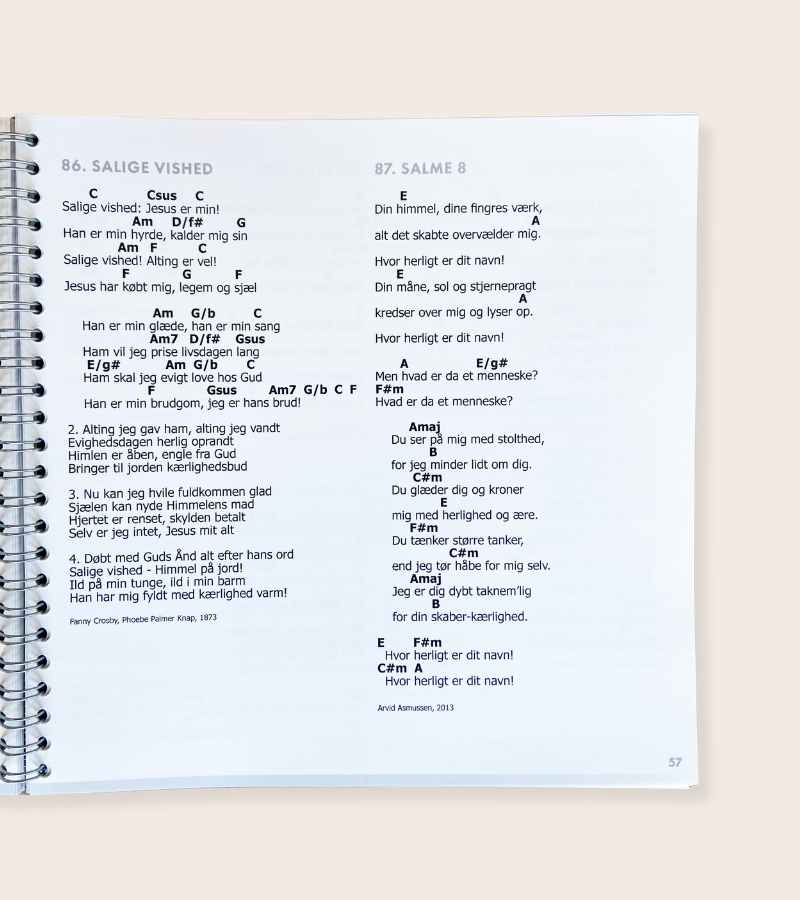 86. SALIGE VISHED
C Csus C
Salige vished: Jesus er min!
Am D/f# G
Han er min hyrde, kalder mig sin
Am F C
Salige vished! Alting er vel!
F G F
Jesus har købt mig, legem og sjæl
Am G/b C
Han er min glæde, han er min sang
Am7 D/f# Gsus
Ham vil jeg prise livsdagen lang
E/g# Am G/b C
Ham skal jeg evigt love hos Gud
F Gsus Am7 G/b C F
Han er min brudgom, jeg er hans brud!
2. Alting jeg gav ham, alting jeg vandt
Evighedsdagen herlig oprandt
Himlen er åben, engle fra Gud
Bringer til jorden kærlighedsbud
3. Nu kan jeg hvile fuldkommen glad
Sjælen kan nyde Himmelens mad
Hjertet er renset, skylden betalt
Selv er jeg intet, Jesus mit alt
4. Døbt med Guds Ånd alt efter hans ord
Salige vished - Himmel på jord!
Ild på min tunge, ild i min barm
Han har mig fyldt med kærlighed varm!
Fanny Crosby, Phoebe Palmer Knap, 1873
87. SALME 8
E
Din himmel, dine fingres værk,
A
alt det skabte overvælder mig.
Hvor herligt er dit navn!
E
Din måne, sol og stjernepragt
A
kredser over mig og lyser op.
Hvor herligt er dit navn!
A E/g#
Men hvad er da et menneske?
F#m
Hvad er da et menneske?
Amaj
Du ser på mig med stolthed,
B
for jeg minder lidt om dig.
C#m
Du glæder dig og kroner
E
mig med herlighed og ære.
F#m
Du tænker større tanker,
C#m
end jeg tør håbe for mig selv.
Amaj
Jeg er dig dybt taknem'lig
B
for din skaber-kærlighed.
E F#m
Hvor herligt er dit navn!
C#m A
Hvor herligt er dit navn!
Arvid Asmussen, 2013
57